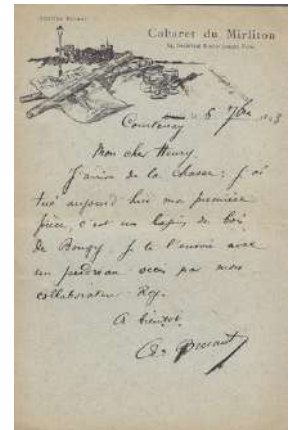 Cabaret du Mirliton
84, Boulevard Rochechouart, Paris
Courtenay le 6 7bre
Mon cher Henry
J'arrive de la chasse; j'ai
tué aujourd'hui ma première
pièce, c'est un lapin de bois
de Bougy. Je te l'envoie avec
un perdreau occis par mon
collaborateur Roy.
A bientôt
Ar Bruant